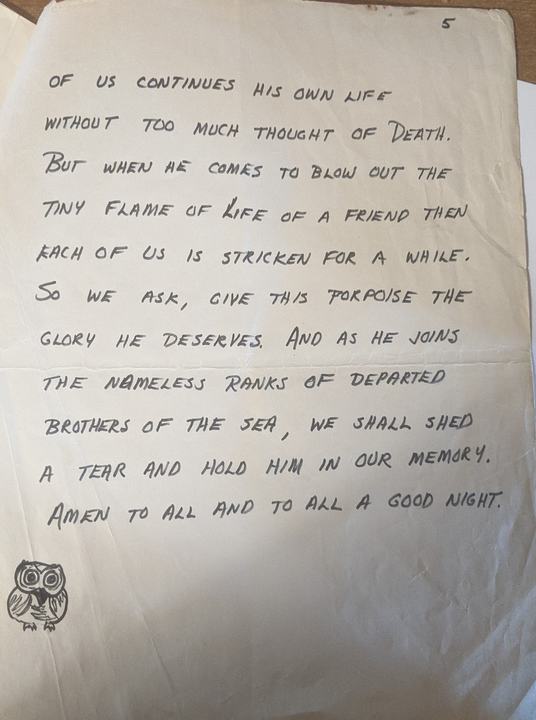 5
OF US CONTINUES HIS OWN LIFE
WITHOUT TOO MUCH THOUGHT OF DEATH.
BUT WHEN HE COMES TO BLOW OUT THE
TINY FLAME OF LIFE OF A FRIEND THEN
EACH OF US IS STRICKEN FOR A WHILE.
SO WE ASK, GIVE THIS PORPOISE THE
GLORY HE DESERVES. AND AS HE JOINS
THE NAMELESS RANKS OF DEPARTED
BROTHERS OF THE SEA, WE SHALL SHED
A TEAR AND HOLD HIM IN OUR MEMORY.
AMEN TO ALL AND TO ALL A GOOD NIGHT.